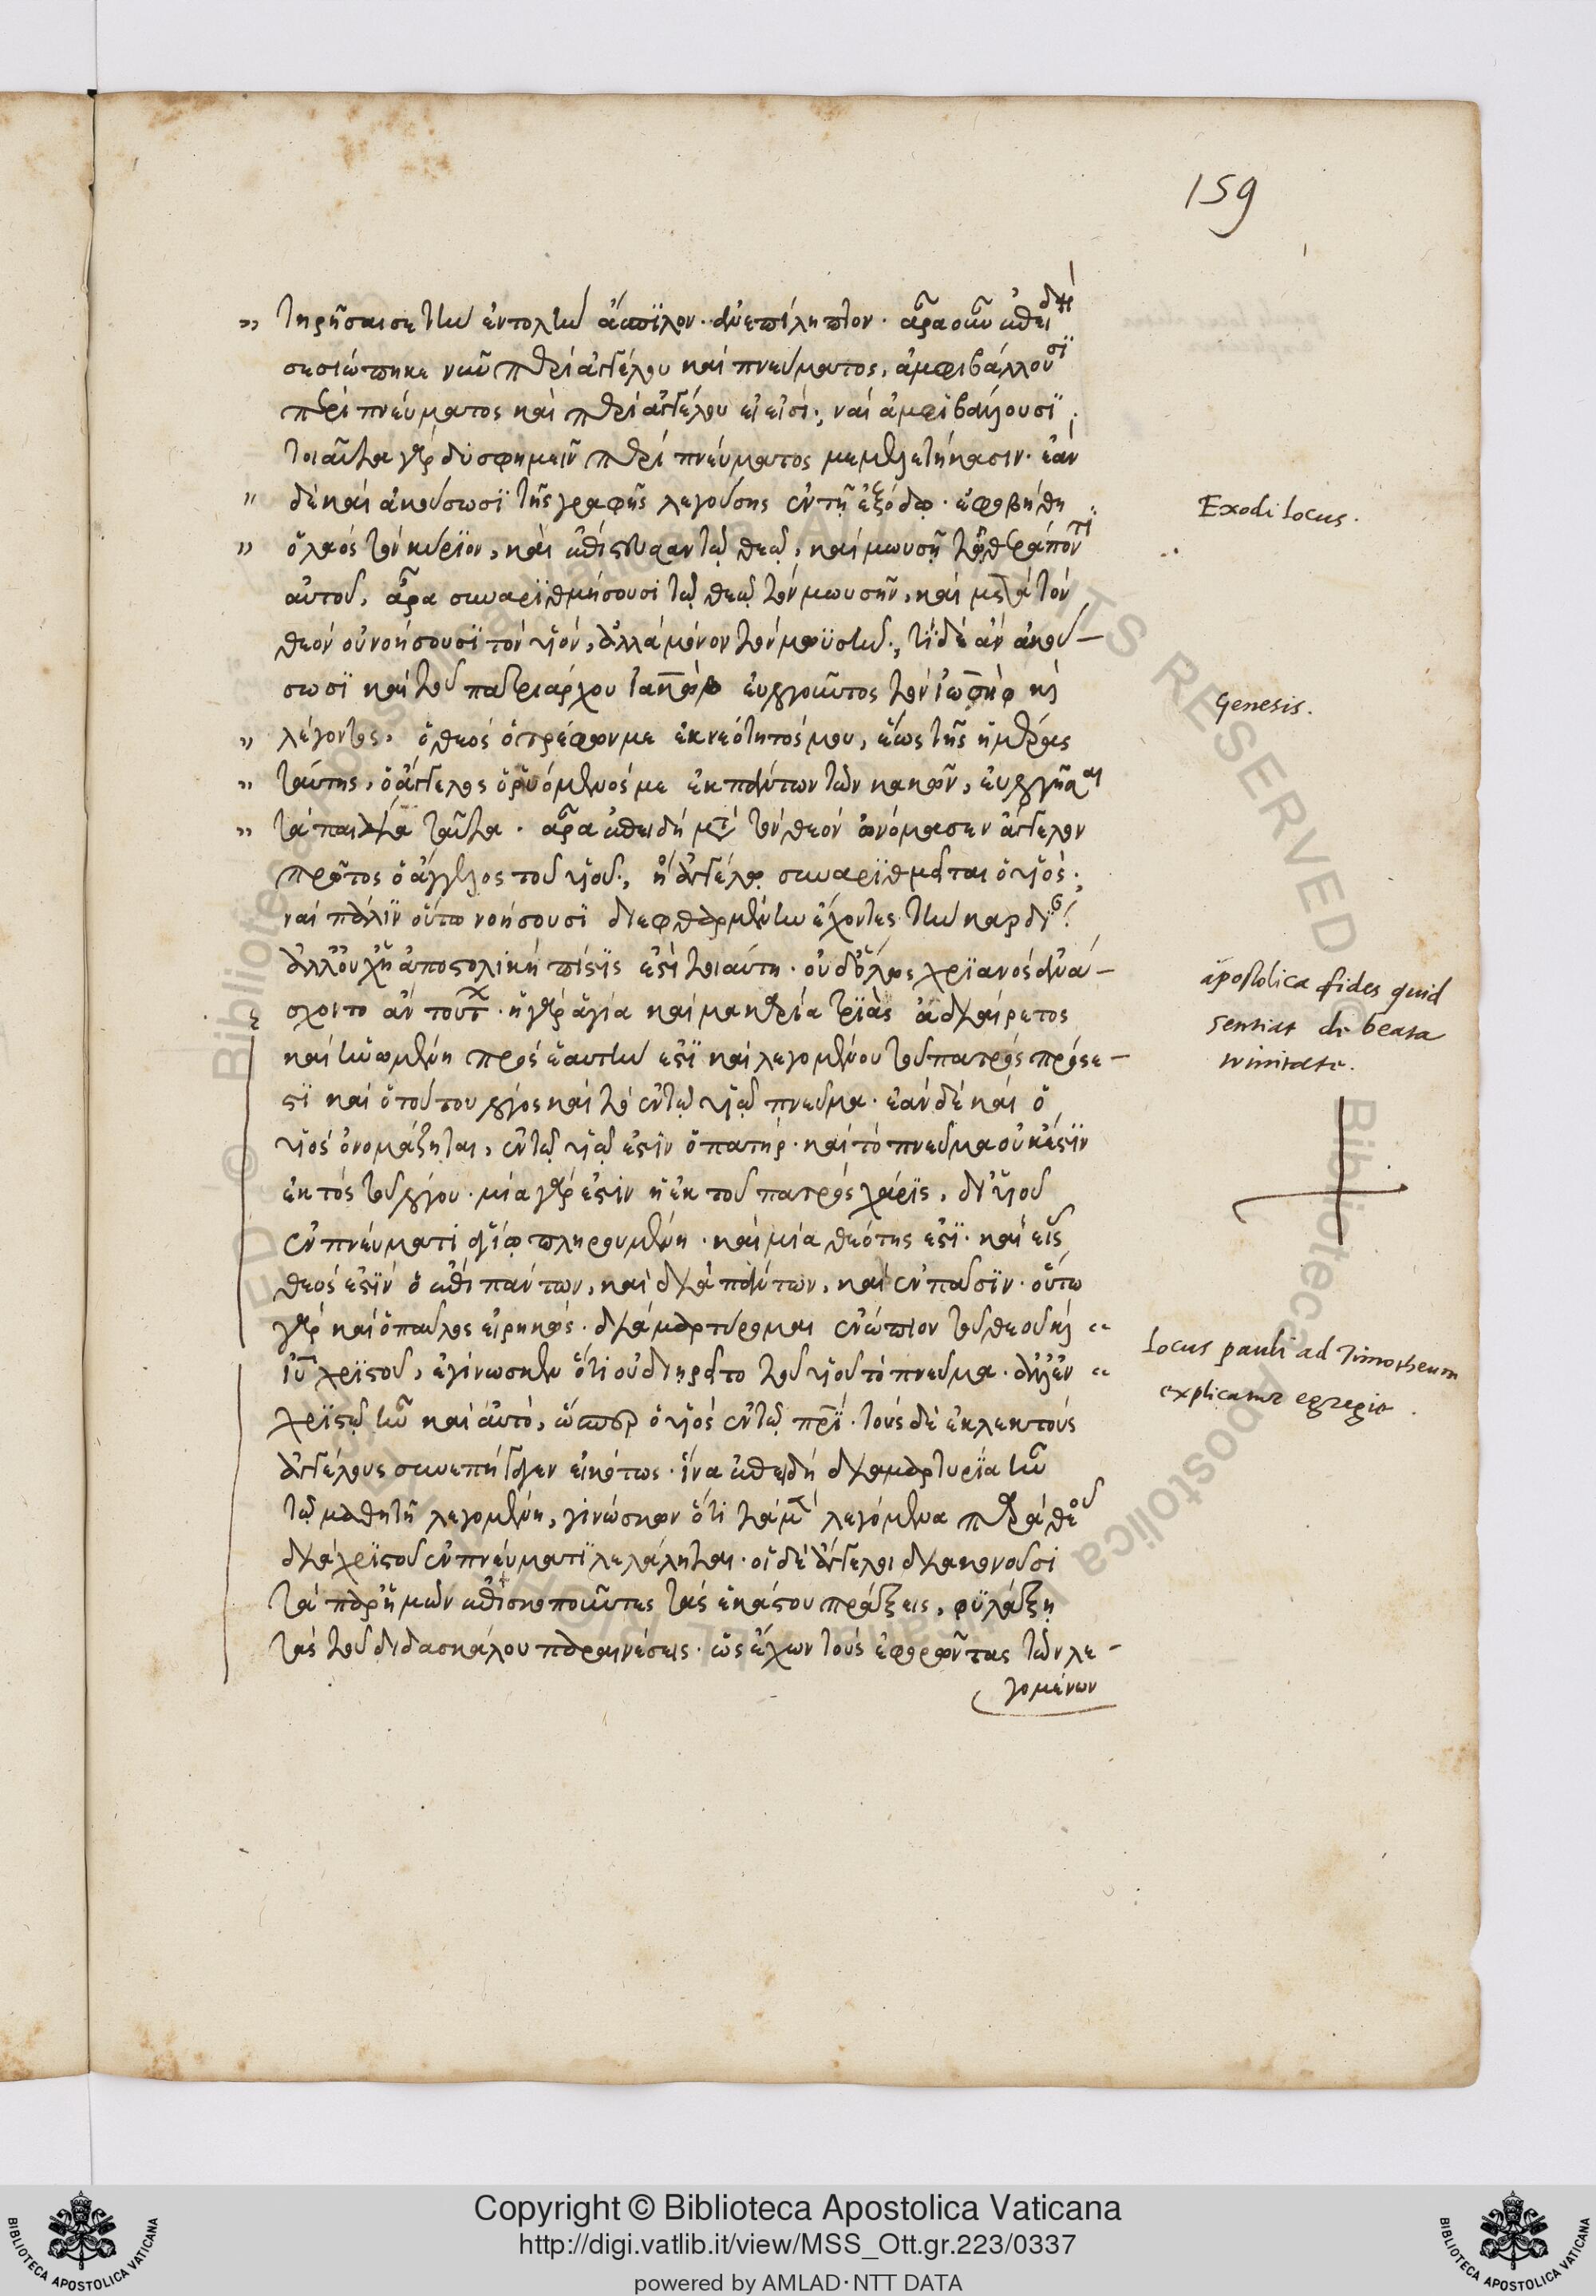 159
τηρῆσαι σε τὴν ἐντολὴν ἄσπιλον· ἀνεπίληπτον· ἆρα οὖν ἐπειδὴ
σεσιώπηκε νῦν περὶ ἀγγέλου καὶ πνεύματος, ἀμφιβάλλουσϊ
περὶ πνεύματος καὶ περὶ ἀγγέλου εἰ εἰσί·, ναὶ ἀμφιβάλλουσϊ·
τοιαῦτα γὰρ δυσφημεῖν περὶ πνεύματος μεμελετήκασιν· ἐὰν
δὲ καὶ ἀκούσωσϊ τῆς γραφῆς λεγούσης ἐν τῇ ἐξόδῳ· ἐφοβήθη
ὁ λαὸς τὸν κύρϊον, καὶ ἐπίστευσαν τῷ θεῷ, καὶ μωυσῇ τῷ θεράποντϊ
αὐτοῦ, ἆρα συναρϊθμήσουσι τῷ θεῷ τὸν μωυσῆν, καὶ μετὰ τὸν
θεὸν οὐ νοήσουσϊ τὸν υἱόν, ἀλλὰ μόνον τὸν μωϋσῆν·, τί δὲ ἂν ἀκού–
σωσϊ καὶ τοῦ πατριάρχου ἰακὼβ εὐλογοῦντος τὸν ἰωσὴφ καὶ
λέγοντος, ὁ θεὸς ὁ τρέφων με ἐκ νεότητός μου, ἕως τῆς ἡμέρας
ταύτης, ὁ ἄγγελος ὁ ῥυόμενός με ἐκ πάντων τῶν κακῶν, εὐλογῆσαι
τὰ παιδία ταῦτα· ἆρα ἐπειδὴ μετὰ τὸν θεὸν ὠνόμασεν ἄγγελον
πρῶτος ὁ ἄγγελος τοῦ υἱοῦ·, ἢ ἀγγέλῳ συναρϊθμεῖται ὁ υἱός·,
ναὶ πάλϊν οὕτω νοήσουσϊ διεφθαρμένην ἔχοντες τὴν καρδίαν·
ἀλλ' οὐχ ἡ ἀποστολϊκὴ πίστϊς ἐστὶ τοιαύτη· οὐδ' ὅλως χρϊανὸς ἀνά–
σχοιτο ἂν τούτων· ἡ γὰρ ἁγία καὶ μακαρία τρϊὰς ἀδιαίρετος
καὶ ἡνωμένη πρὸς ἑαυτήν ἐστϊ καὶ λεγομένου τοῦ πατρὸς πρόσε–
στϊ καὶ ὁ τούτου λόγος καὶ τὸ ἐν τῷ υἱῷ πνεῦμα· ἐὰν δὲ καὶ ὁ
υἱὸς ὀνομάζηται, ἐν τῷ υἱῷ ἐστὶν ὁ πατήρ· καὶ τὸ πνεῦμα οὐκ ἔστϊν
ἐκτὸς τοῦ λόγου· μία γάρ ἐστὶν ἡ ἐκ τοῦ πατρὸς χάρϊς, δι' υἱοῦ
ἐν πνεύματι ἁγίῳ πληρουμένη· καὶ μία θεότης ἐστϊ· καὶ εἷς
θεός ἐστϊν ὁ ἐπὶ πάντων, καὶ διὰ πάντων, καὶ ἐν πᾶσϊν· οὕτω
γὰρ καὶ ὁ παῦλος εἰρηκώς· διαμαρτύρομαι ἐνώπιον τοῦ θεοῦ καὶ
ἰῦ χρϊστοῦ, ἐγίνωσκεν ὅτι οὐ διῃρεῖτο τοῦ υἱοῦ τὸ πνεῦμα· ἀλλ' ἐν
χρϊστῷ ἦν καὶ αὐτὸ, ὥσπερ ὁ υἱὸς ἐν τῷ πρϊ· τοὺς δὲ ἐκλεκτοὺς
ἀγγέλους συνεπήγαγεν εἰκότως· ἵνα ἐπειδὴ διαμαρτυρία ἦν
τῷ μαθητῇ λεγομένη, γινώσκων ὅτι τὰ μὲν λεγόμενα παρὰ θεοῦ
διὰ χρϊστοῦ ἐν πνεύματϊ λελάληται· οἱ δὲ ἄγγελοι διακονοῦσι
τὰ παρ' ἡμῶν ἐπισκοποῦντες τὰς ἑκάστου πράξεις, φϋλάξῃ
τὰς τοῦ διδασκάλου παραινέσεις· ὡς ἔχων τοὺς ἐφορῶντας τῶν λε–
γομένων
Exodi locus.
Genesis.
apostolica fides quid
sentiat de beata
trinitate.
locus pauli ad Timotheum
explicatur egregie.
Copyright © Biblioteca Apostolica Vaticana
http://digi.vatlib.it/view/MSS_Ott.gr.223/0337
powered by AMLAD·NTT DATA
BIBLIOTECA APOSTOLICA VATICANA
BIBLIOTECA APOSTOLICA VATICANA